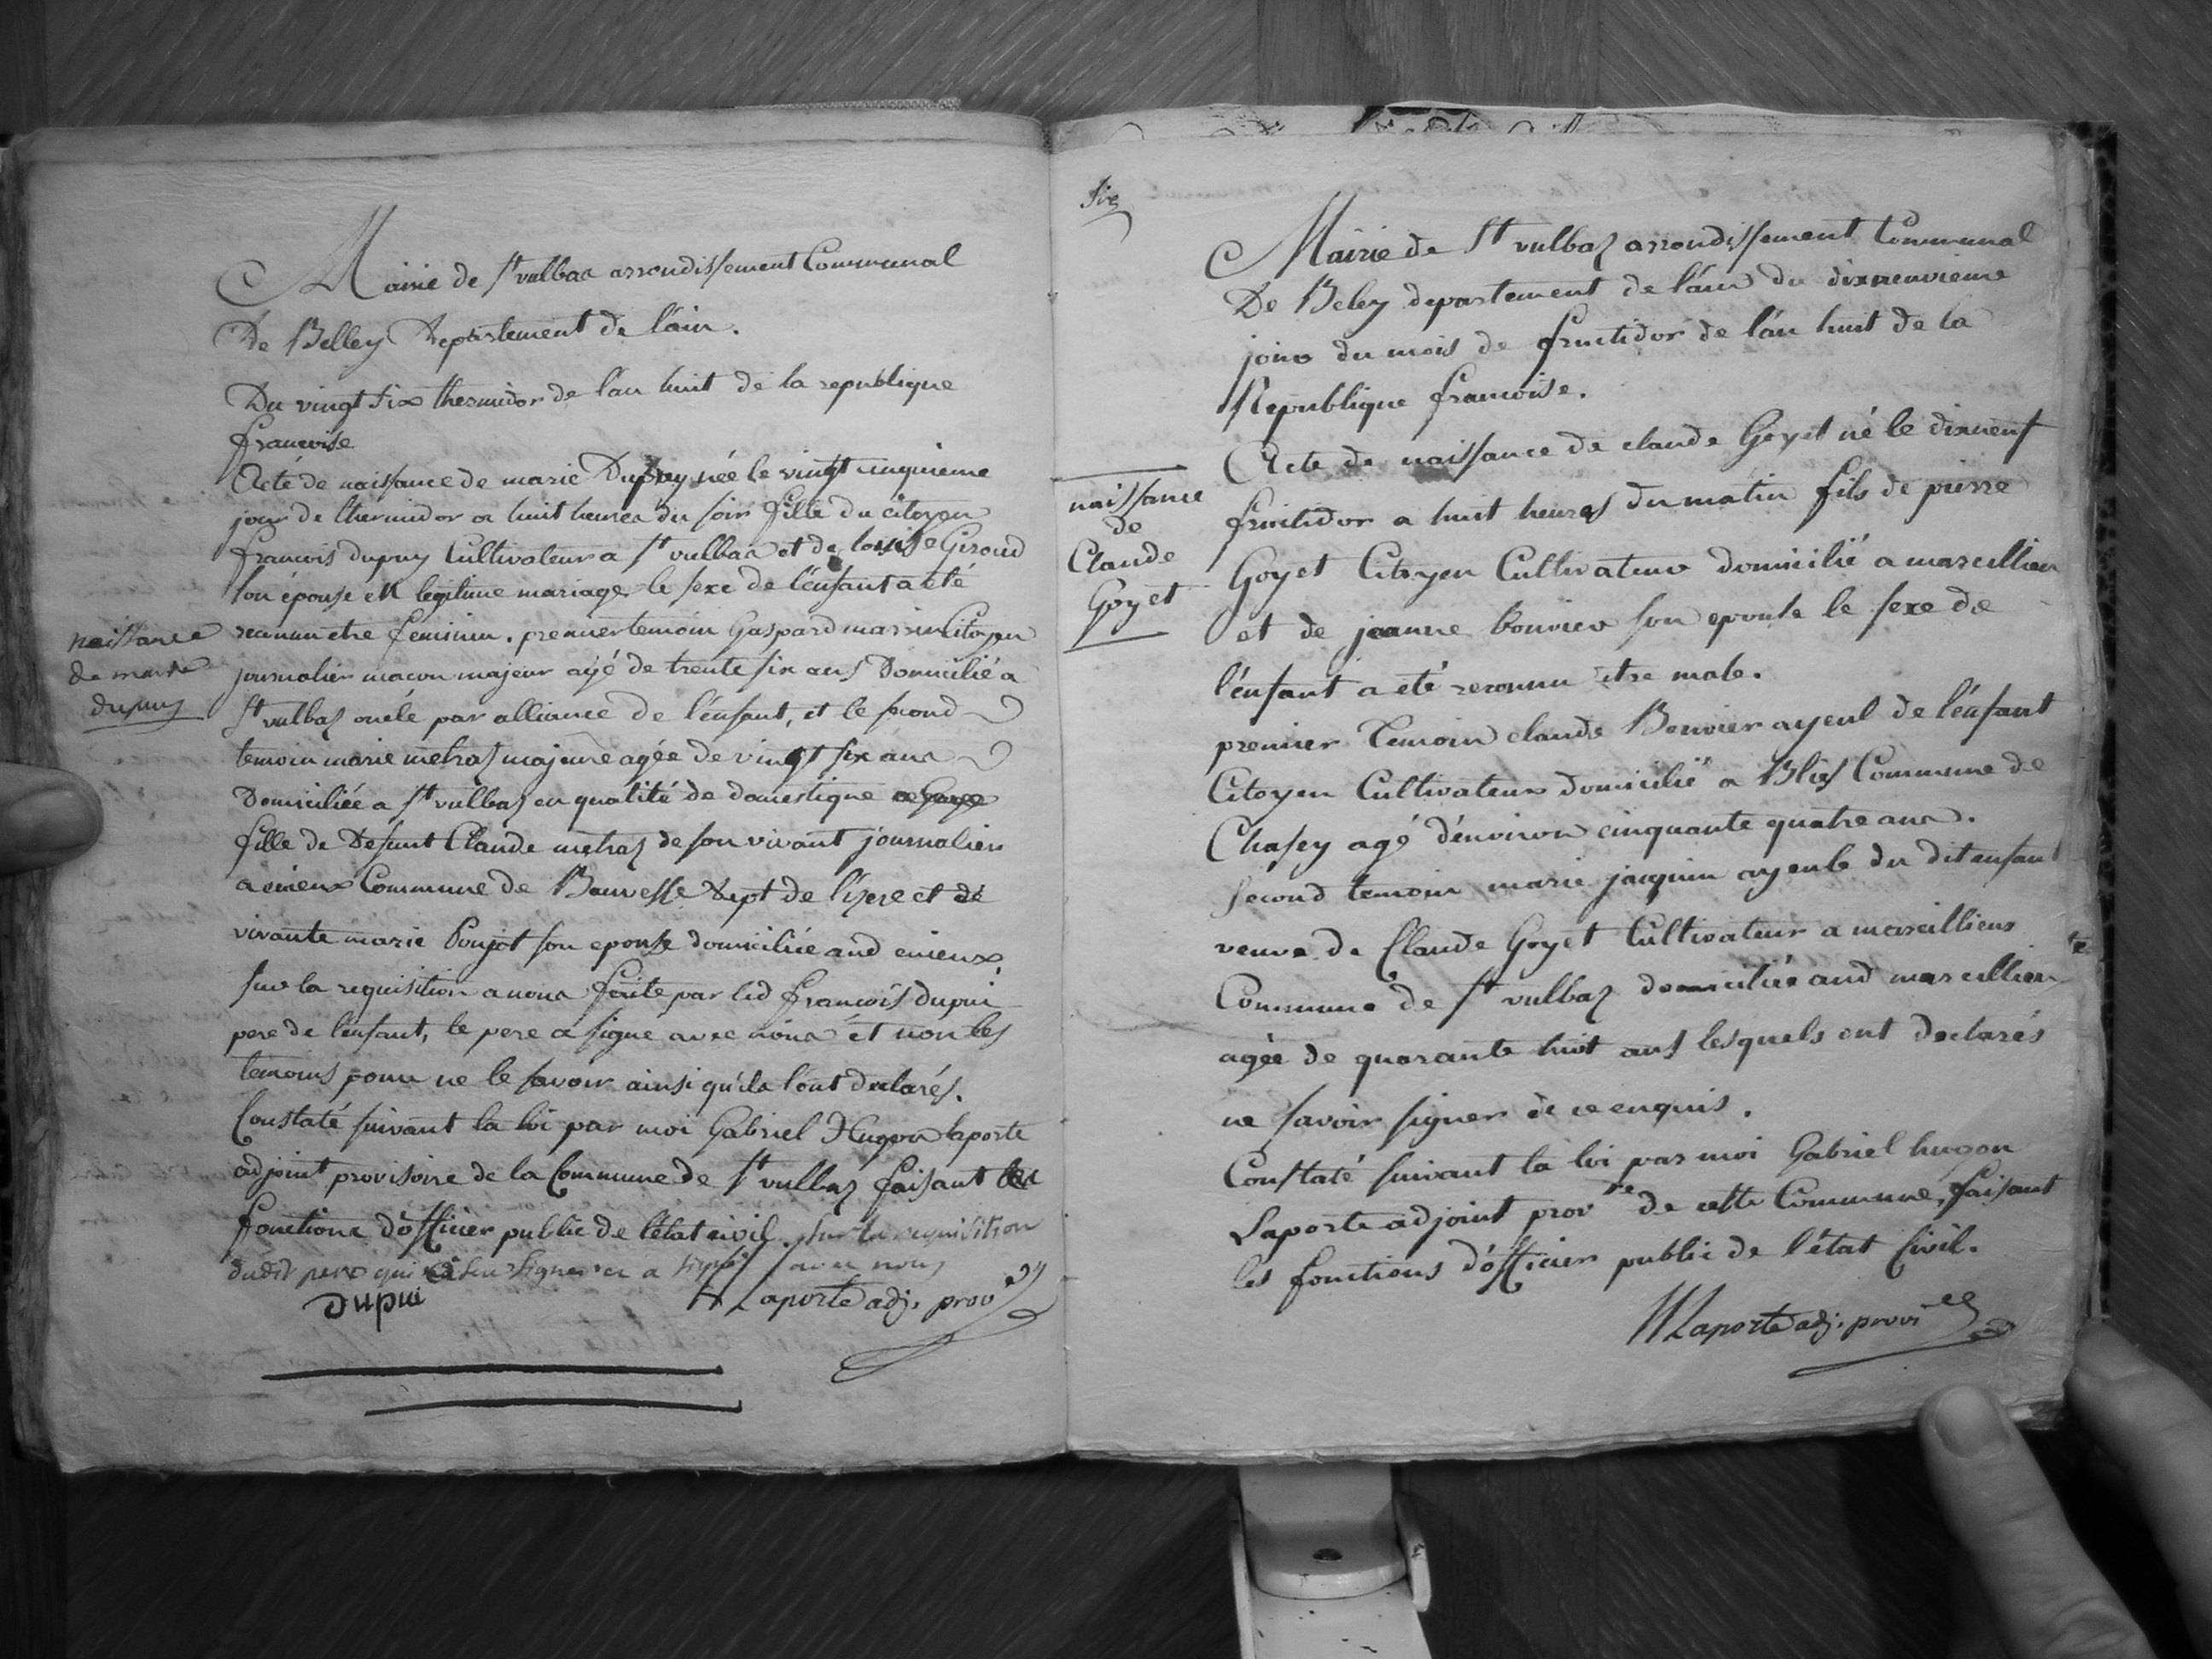 Mairie de St vulbas arrondissement Communal
De Belley Departement de l'ain.
Du vingt six thermidor de l'an huit de la republique
francoise
Acte de naissance de marie Dupuy née le vingt cinquieme
jour de thermidor a huit heures du soir fille du citoyen
francois dupuy Cultivateur a St vulbas et de louise Giroud
son épouse en legitime mariage le sexe de l'enfant a été
reconnu etre feminin. premier temoin Gaspard marrin Citoyen
journalier macon majeur agé de trente six ans Domicilié a
St vulbas oncle par alliance de l'enfant, et le second
temoin marie métras majeure agée de vingt six ans
Domiciliée a St vulbas en qualité de domestique
fille de Defunt Claude metraz de son vivant journalier
a enieux Commune de Bouvesse Dept de l'izere et de
vivante marie Poujot son epouse domiciliée aud enieux,
sur la requisition a nous faite par led francois dupui
pere de l'enfant, le pere a signé avec nous et non les
temoins pour ne le savoir ainsi qu'ils l'ont declarés.
Constaté suivant la loi par moi Gabriel Hugon laporte
adjoint provisoire de la Commune de St vulbas faisant les
fonctions d'officier public de l'état civil. sur la requisition
dudit pere qui a signé avec nous
Dupui H Laporte adj. prov
naissance
de marie
dupuy
Mairie de St vulbas arrondissement Communal
De Beley departement de l'ain du dixneuvieme
jour du mois de fructidor de l'an huit de la
Republique francoise.
Acte de naissance de claude Goyet né le dixneuf
fructidor a huit heures du matin fils de pierre
Goyet Citoyen Cultivateur domicilié a marcillieu
et de jeanne bouvier son epouse le sexe de
l'enfant a eté reconnu etre male.
premier Temoin claude Bouvier ayeul de l'enfant
Citoyen Cultivateur domicilié a Blies Commune de
Chasey agé d'environ cinquante quatre ans.
second temoin marie jacquin ayeule du dit enfant
veuve de Claude Goyet Cultivateur a marcillieux
Commune de St vulbas domiciliée aud marcillieu
agée de quarante huit ans lesquels ont declarés
ne savoir signer de ce enquis.
Constaté suivant la loi par moi Gabriel hugon
Laporte adjoint prov.re de cette Commune, faisant
les fonctions d'officier public de l'état Civil.
H Laporte adj. provi
naissance
de
Claude
Goyet